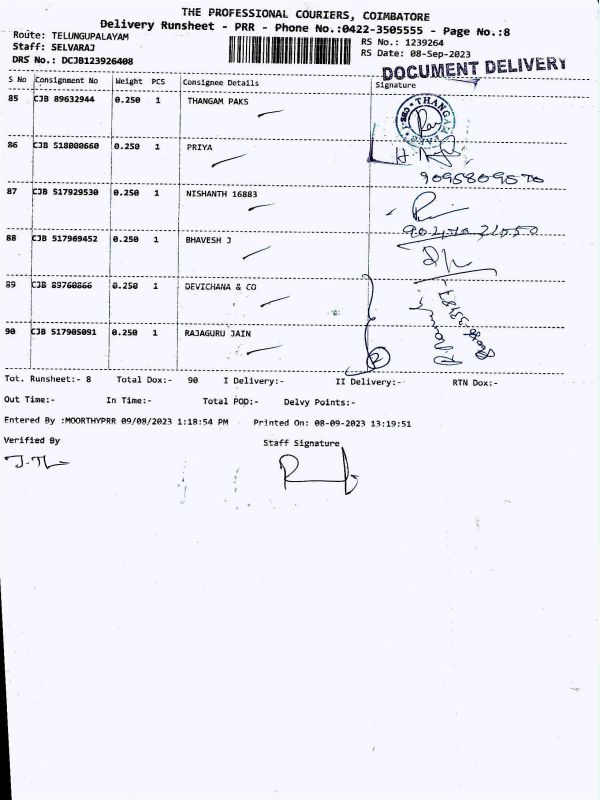 THE PROFESSIONAL COURIERS, COIMBATORE
Delivery Runsheet - PRR - Phone No.:0422-3505555 - Page No.:8
Route: TELUNGUPALAYAM RS No.: 1239264
Staff: SELVARAJ RS Date: 08-Sep-2023
DRS No.: DCJB123926408 DOCUMENT DELIVERY
S No Consignment No Weight PCS Consignee Details Signature
85 CJB 89632944 0.250 1 THANGAM PAKS
86 CJB 518000660 0.250 1 PRIYA
87 CJB 517929530 0.250 1 NISHANTH 16883
88 CJB 517969452 0.250 1 BHAVESH J
89 CJB 89760866 0.250 1 DEVICHANA & CO
90 CJB 517905091 0.250 1 RAJAGURU JAIN
2
Tot. Runsheet:- 8 Total Dox:- 90 I Delivery:- II Delivery:- RTN Dox:-
Out Time:- In Time:- Total POD:- Delvy Points:-
Entered By :MOORTHYPRR 09/08/2023 1:18:54 PM Printed On: 08-09-2023 13:19:51
Verified By Staff Signature